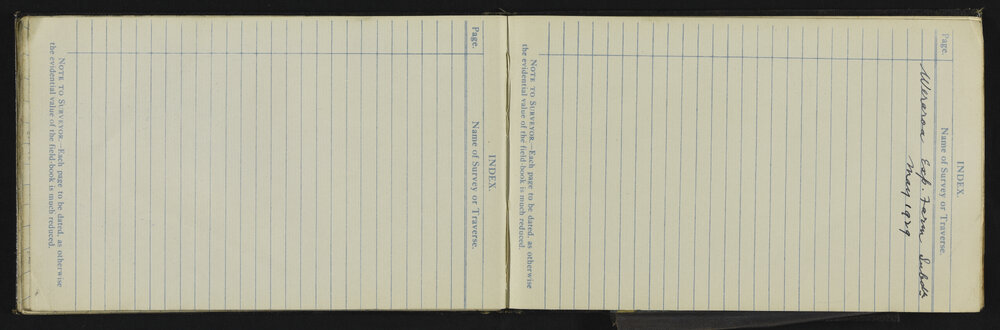 INDEX.
Page.
Name of Survey or Traverse.
NOTE TO SURVEYOR.—Each page to be dated, as otherwise
the evidential value of the field-book is much reduced.
INDEX.
Page.
Name of Survey or Traverse.
Weraroa Exp. Farm Subdn
May 1929
NOTE TO SURVEYOR.—Each page to be dated, as otherwise
the evidential value of the field-book is much reduced.